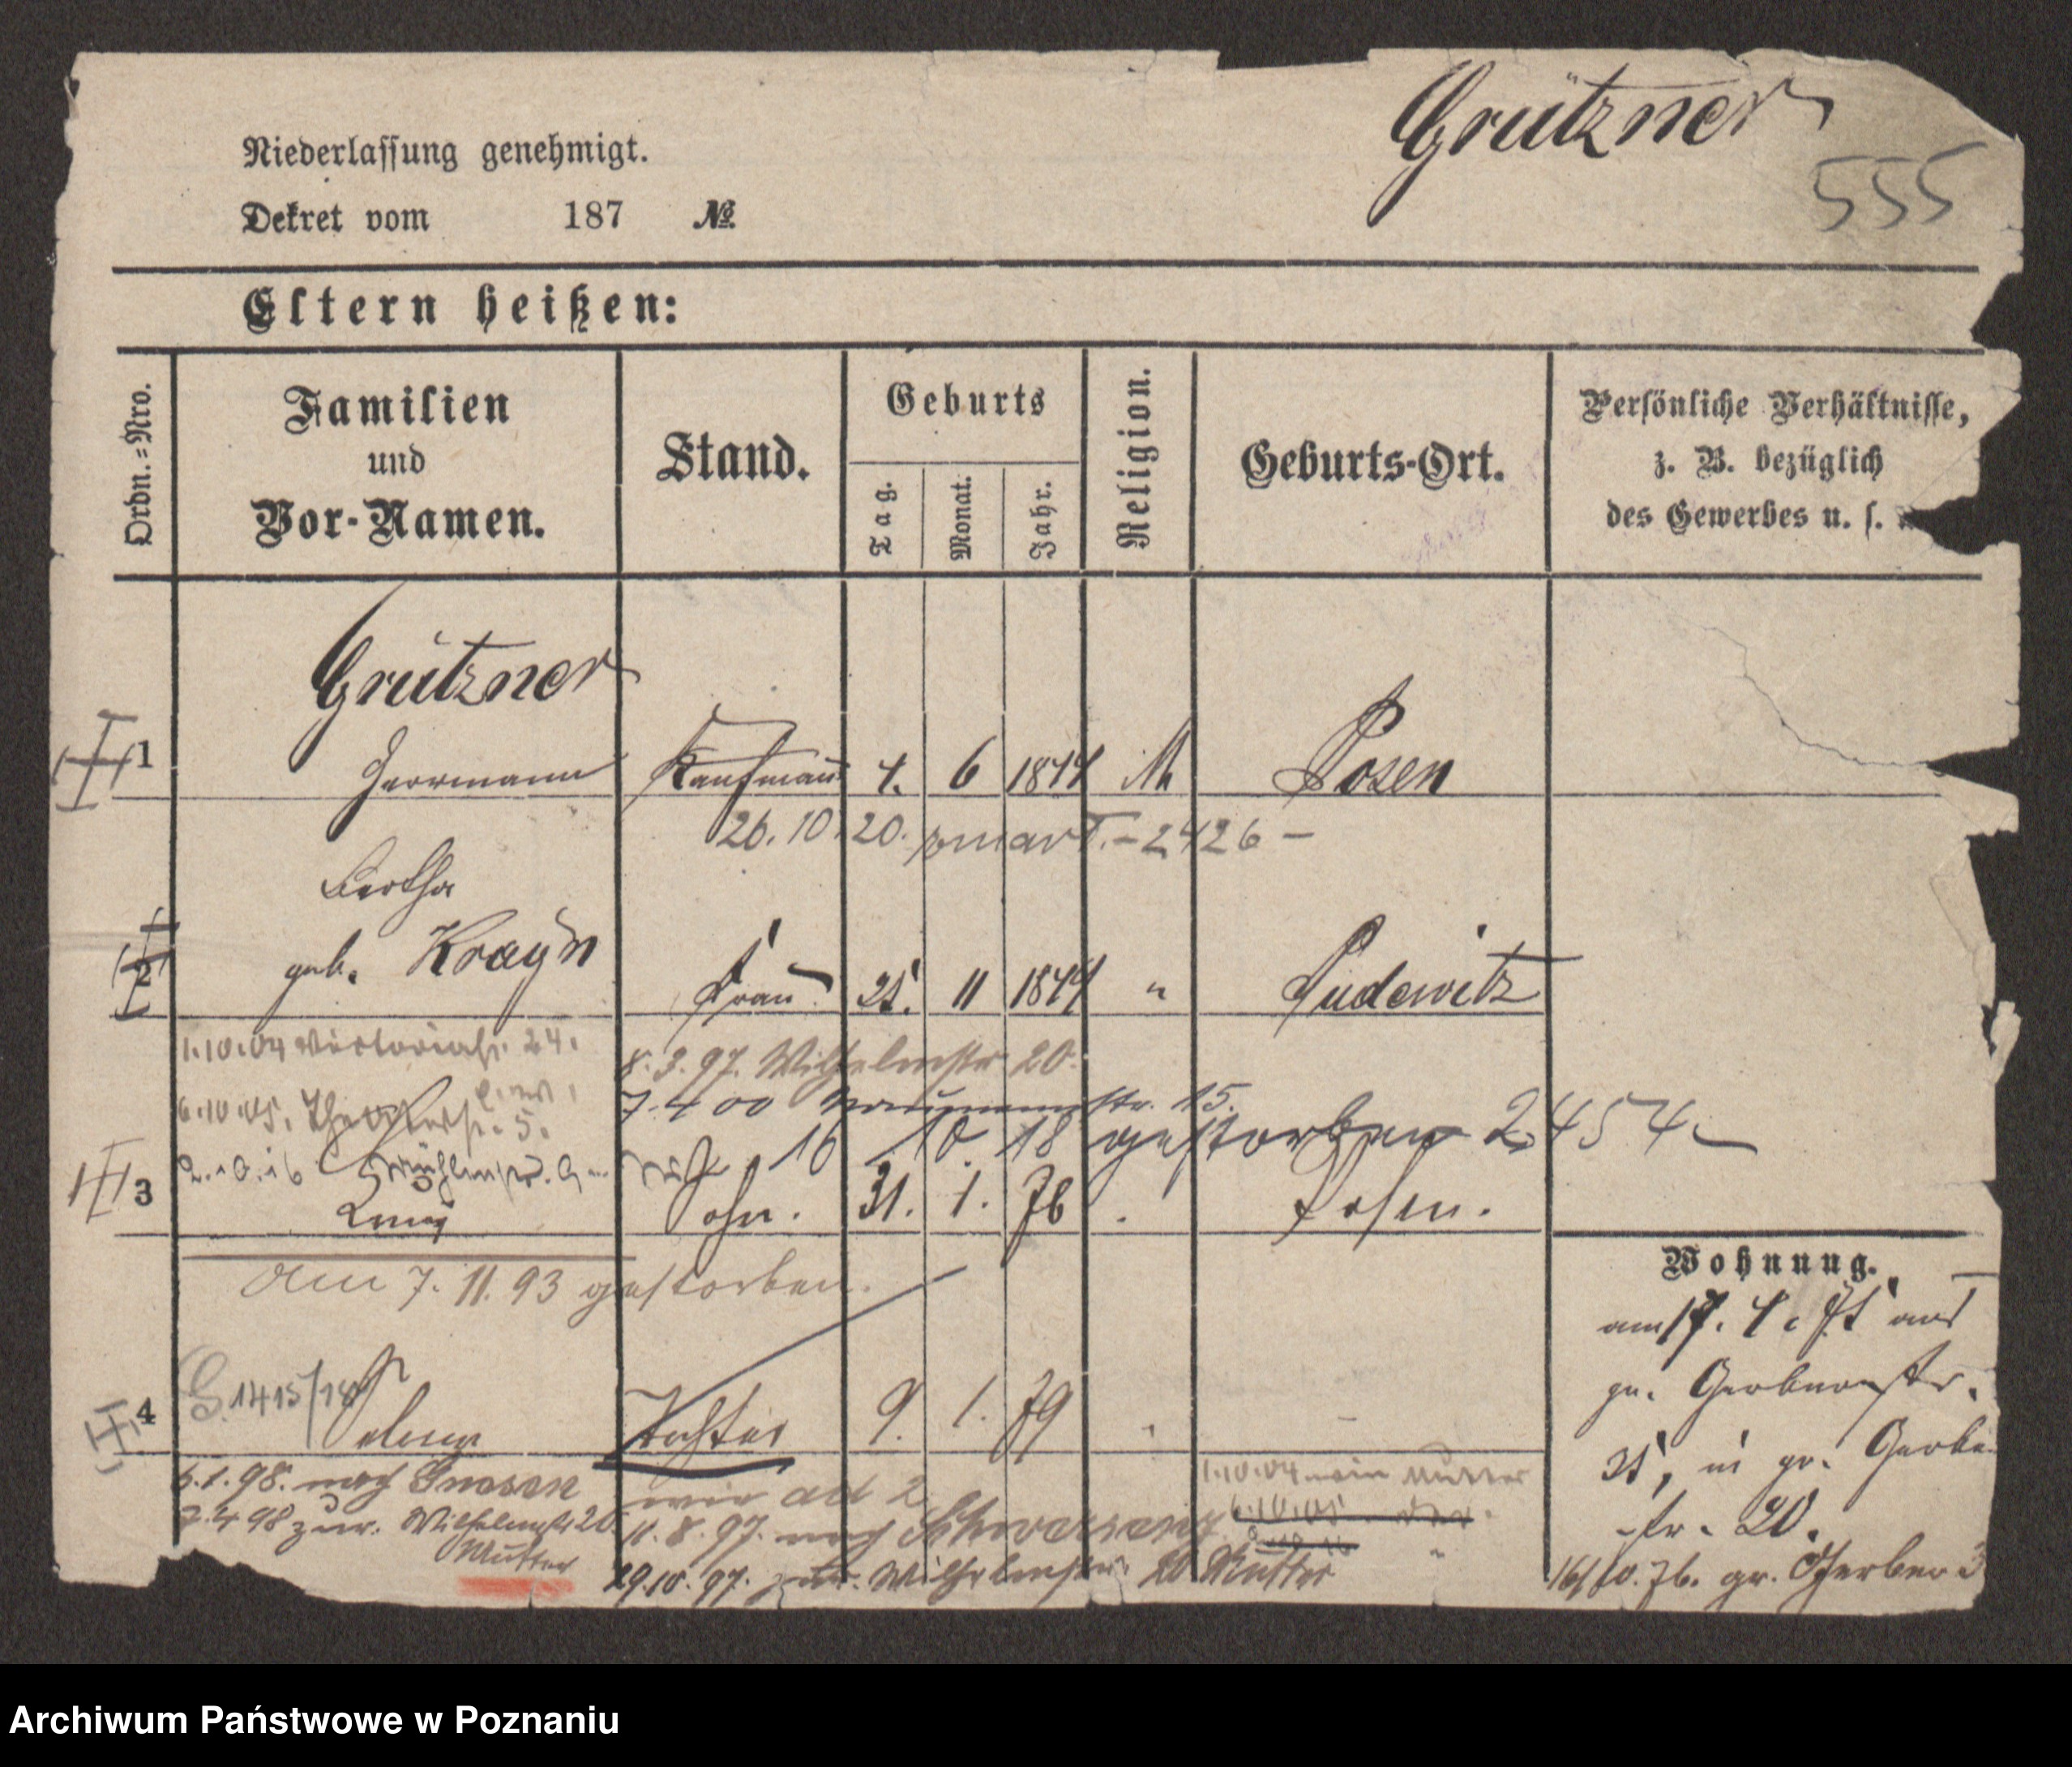 Grützner
555
Niederlassung genehmigt.
Dekret vom 187 №
Eltern heißen:
Ordn.=Nro.
Familien
und
Vor-Namen.
Stand.
Geburts
Tag.
Monat.
Jahr.
Religion.
Geburts-Ort.
Persönliche Verhältnisse,
z. B. bezüglich
des Gewerbes u. s.
Grützner
1 Herrmann Kaufmann 4. 6 1844 M Posen
26. 10. 20. 2426 –
Bertha
2 geb. Krayn Frau 25. 11 1844 " Pudewitz
1.10.04 Victoriastr. 24.
8. 3. 97. Wilhelmstr 20.
6.10.05. Theaterstr. 5.
7. 4 00 str. 15.
16 10 18 gestorben 2454
2.10.16
3 Sohn. 31. 1. 76 Posen.
am 7. 11. 93 gestorben.
4 Selma Tochter 9. 1. 79
6.1.98. nach Gnesen
7.4 98 zur. Wilhelmstr 20.
Mutter
wie ad 2
11. 8. 97. nach Schwersenz
29.10. 97. zur. Wilhelmstr. 20 Mutter
1.10.04 Mutter
6.10.05
Wohnung.
am 17. 4. 75 aus
gr. Gerberstr.
25, in gr. Gerber
str. 20.
16/10. 76. gr. Gerber 3
Archiwum Państwowe w Poznaniu